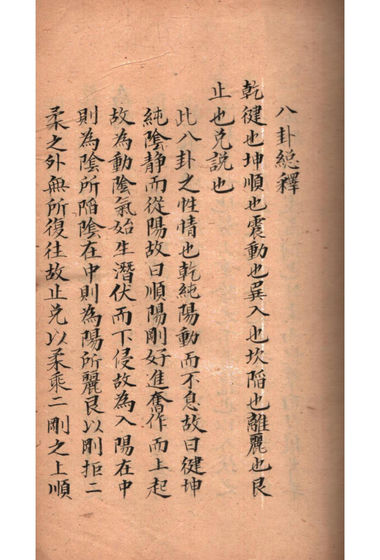 八卦總釋
乾健也坤順也震動也巽入也坎陷也離麗也艮
止也兌說也
此八卦之性情也乾純陽動而不息故曰健坤
純陰静而從陽故曰順陽剛好進奮作而上起
故為動陰氣始生潛伏而下侵故為入陽在中
則為陰所陷陰在中則為陽所麗艮以剛拒二
柔之外無所復往故止兌以柔乘二剛之上順